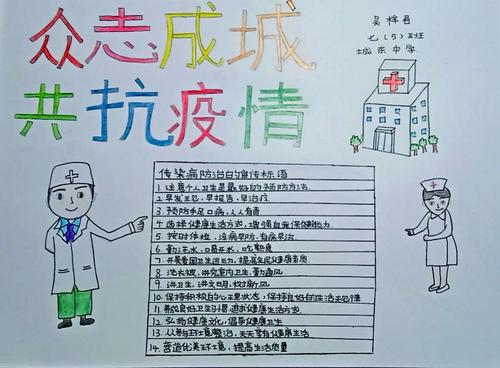 众志成城
共抗疫情
吴梓君
七(5)班
城东中学
传染病防治的宣传标语
1. 注意个人卫生是最好的预防方法
2. 早发现,早报告,早治疗
3. 预防手足口病,人人有责
4. 选择健康生活方式,增强自我保健能力
5. 按时体检,没病早防,有病早治
6. 勤洗水,喝开水,吃熟食
7. 开展爱国卫生运动,提高全民健康素质
8. 洗衣被,讲究室内卫生,勤通风
9. 讲卫生,讲文明,树新风
10. 保持积极的心理状态,保持良好的生活
11. 养成良好卫生习惯,追求健康生活方式
12. 弘扬健康文化,倡导健康卫生
13. 从参与环境整治,天天享有健康生活
14. 营造优美环境,提高生活质量